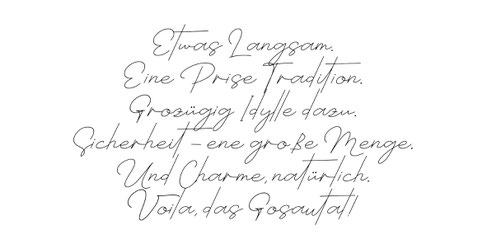 Etwas Langsam.
Eine Prise Tradition.
Grozügig Idylle dazu.
Sicherheit - ene große Menge.
Und Charme, natürlich.
Voila, das Gosautal!